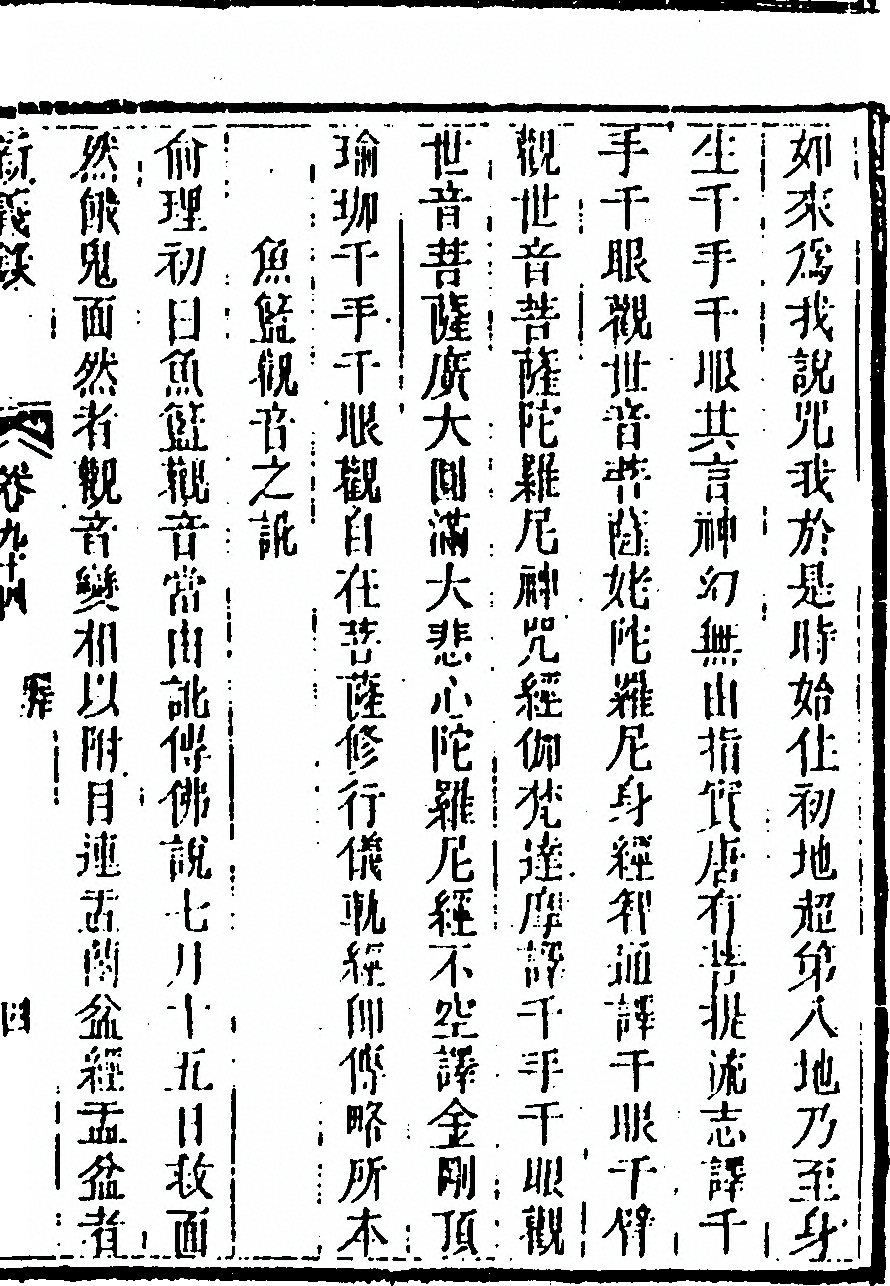 如來爲我說咒我於是時始住初地超第八地乃至身
生千手千眼其言神幻無由指實唐有菩提流志譯千
手千眼觀世音菩薩姥陀羅尼身經智通譯千眼千臂
觀世音菩薩陀羅尼神咒經伽梵達摩譯千手千眼觀
世音菩薩廣大圓滿大悲心陀羅尼經不空譯金剛頂
瑜珈千手千眼觀自在菩薩修行儀軌經師傳略所本
魚籃觀音之訛
俞理初曰魚籃觀音當由訛傳佛說七月十五日救面
然餓鬼面然者觀音變相以附目連盂蘭盆經盂盆者
新義錄
卷九十四
釋
四